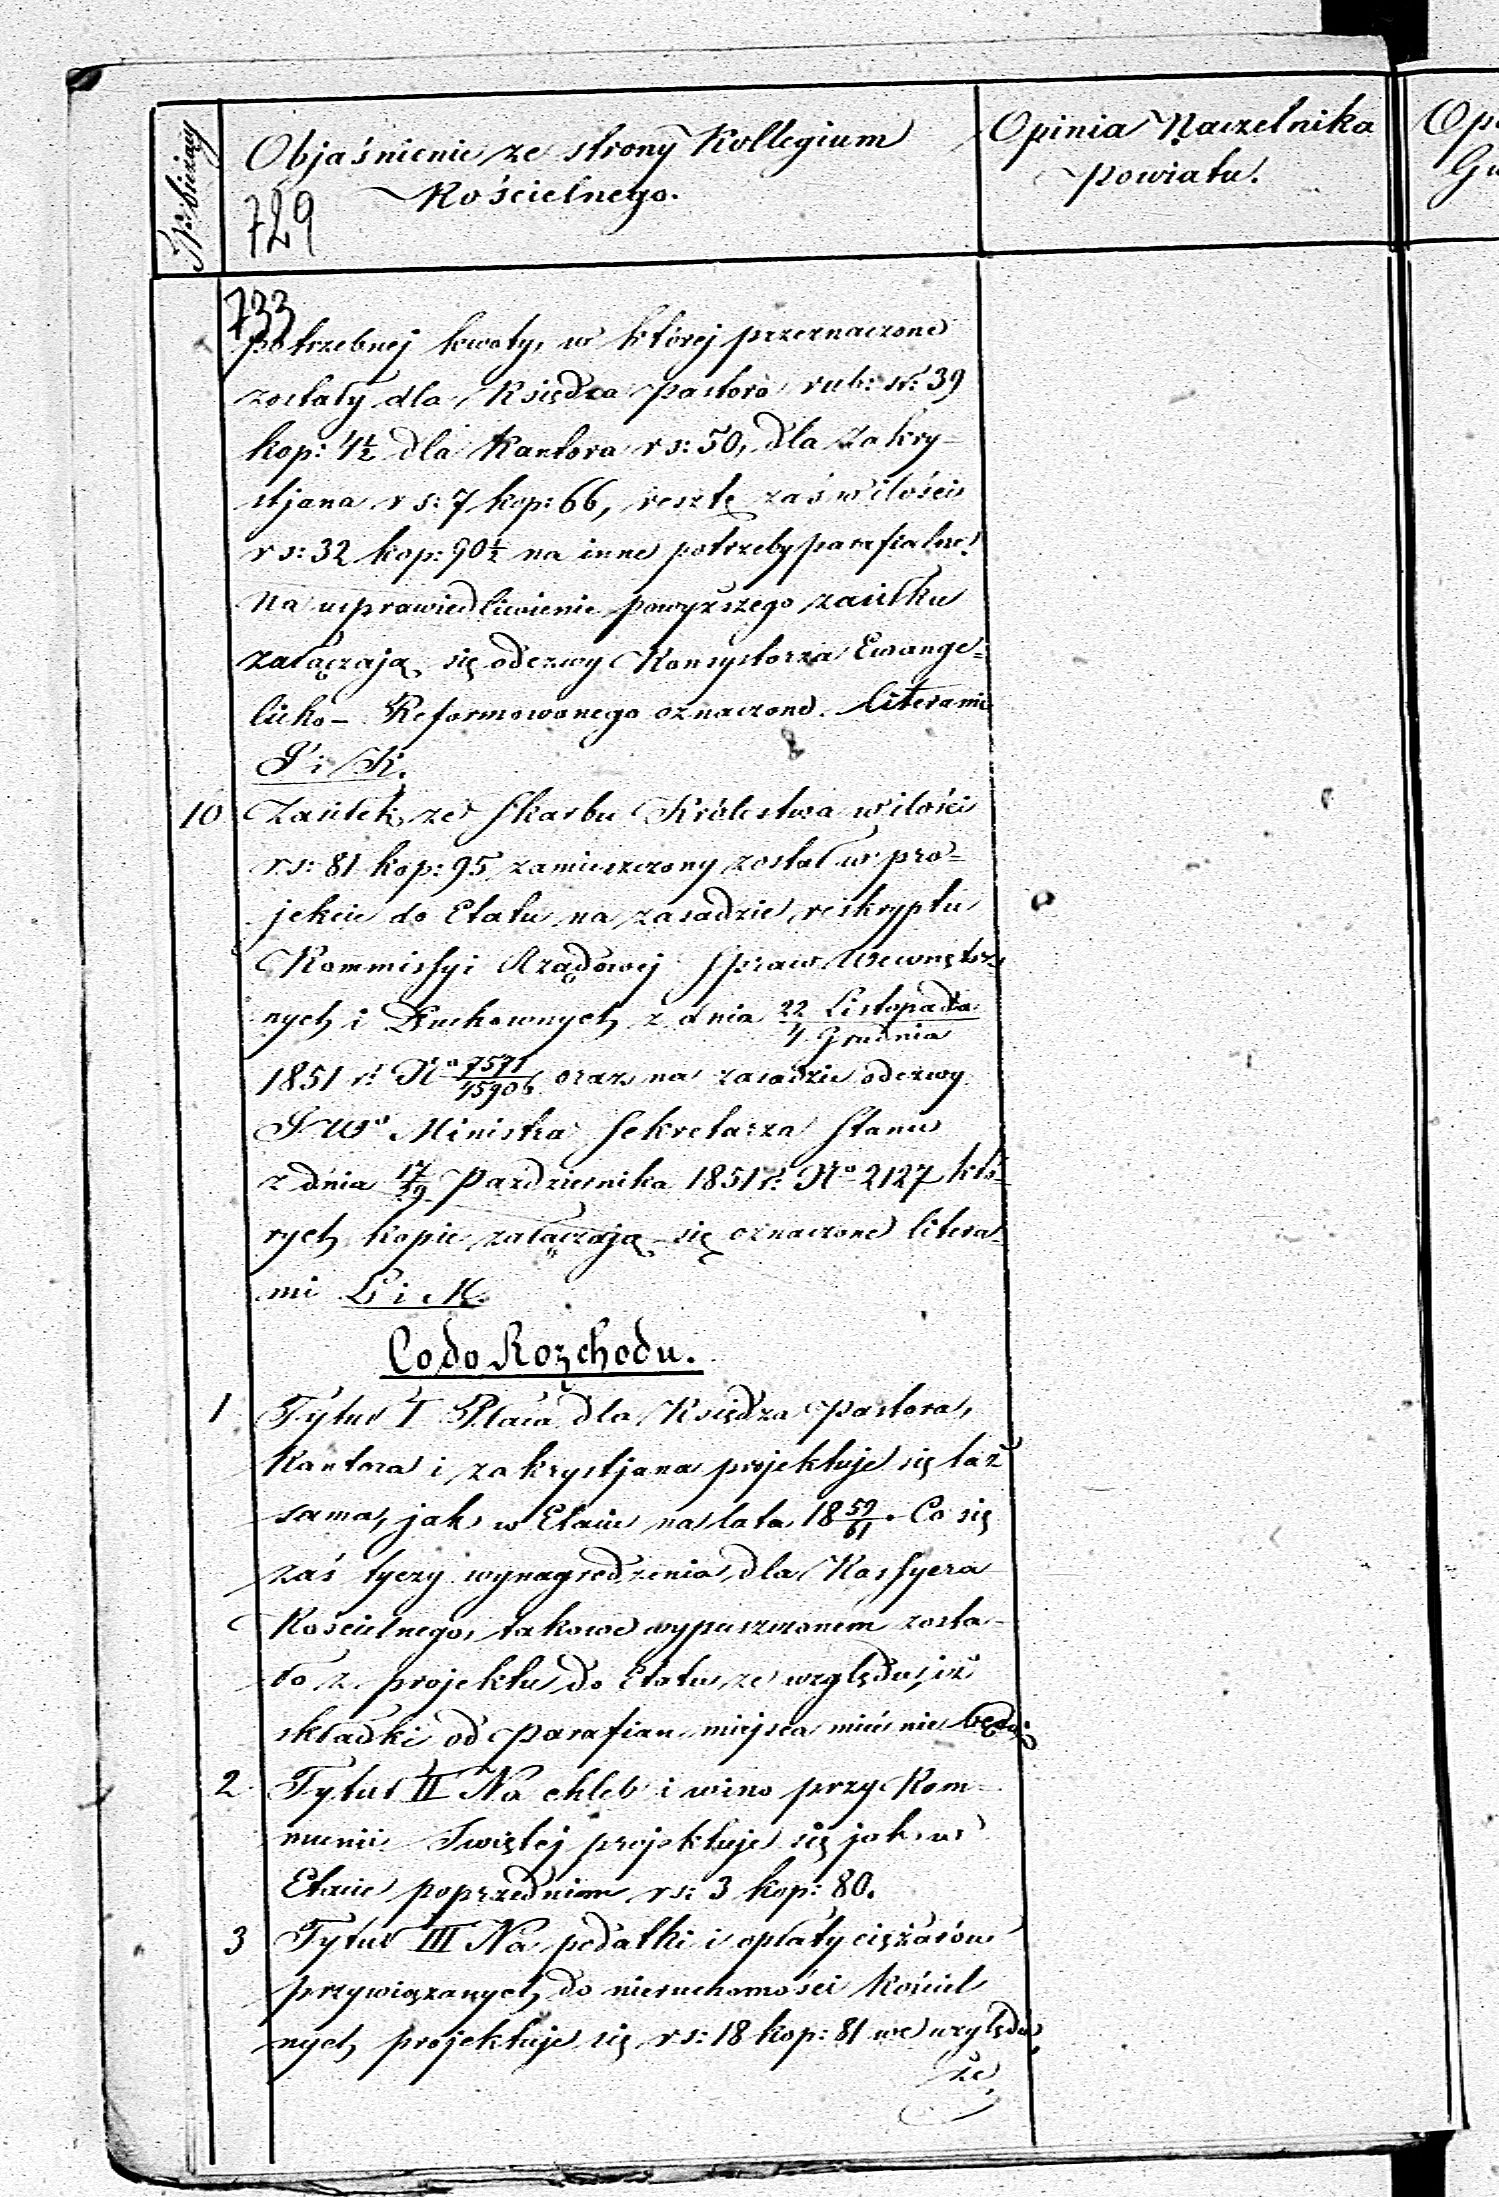 No bieżący
Objaśnienie ze strony Kollegium
Kościelnego.
729
Opinia Naczelnika
Powiatu.
733
potrzebnej kwoty, w której przeznaczone
zostały dla Księdza Pastora rub: sr: 39
kop: 4½ dla Kantora rs: 50, dla Zakry-
stjana rs: 7 kop: 66, resztę zaś w ilości
rs: 32 kop: 90½ na inne potrzeby parafialne.
Na usprawiedliwienie powyższego zasiłku
załączają się odezwy Konsystorza Ewange-
licko- Reformowanego oznaczone literami
J i K.
10 Zasiłek ze Skarbu Królestwa w ilości
rs: 81 kop: 95 zamieszczony został w pro-
jekcie do Etatu na zasadzie reskryptu
Kommissyi Rządowej Spraw Wewnętrz
nych i Duchownych z dnia 22 Listopada / 4 Grudnia
1851 r. No 7571/15906 oraz na zasadzie odezwy
JWo Ministra Sekretarza Stanu
z dnia 17/29 Października 1851 r. No 2127 któ-
rych kopie załączają się oznaczone litera-
mi L i M.
Co do Rozchodu.
1 Tytuł I Płaca dla Księdza Pastora,
Kantora i zakrystjana projektuje się taż
sama, jak w Etacie na lata 18 59/61. Co się
zaś tyczy wynagrodzenia dla Kassyera
Kościelnego, takowe wypuszczonem zosta-
ło z projektu do Etatu ze względu, iż
składki od Parafian miejsca mieć nie będą
2 Tytuł II Na chleb i wino przy Kom-
munii Świętej projektuje się jak w
Etacie poprzednim rs: 3 kop: 80.
3 Tytuł III Na podatki i opłaty ciężarów
przywiązanych do nieruchomości Kościel
nych projektuje się rs: 18 kop: 81 we względzie,
że